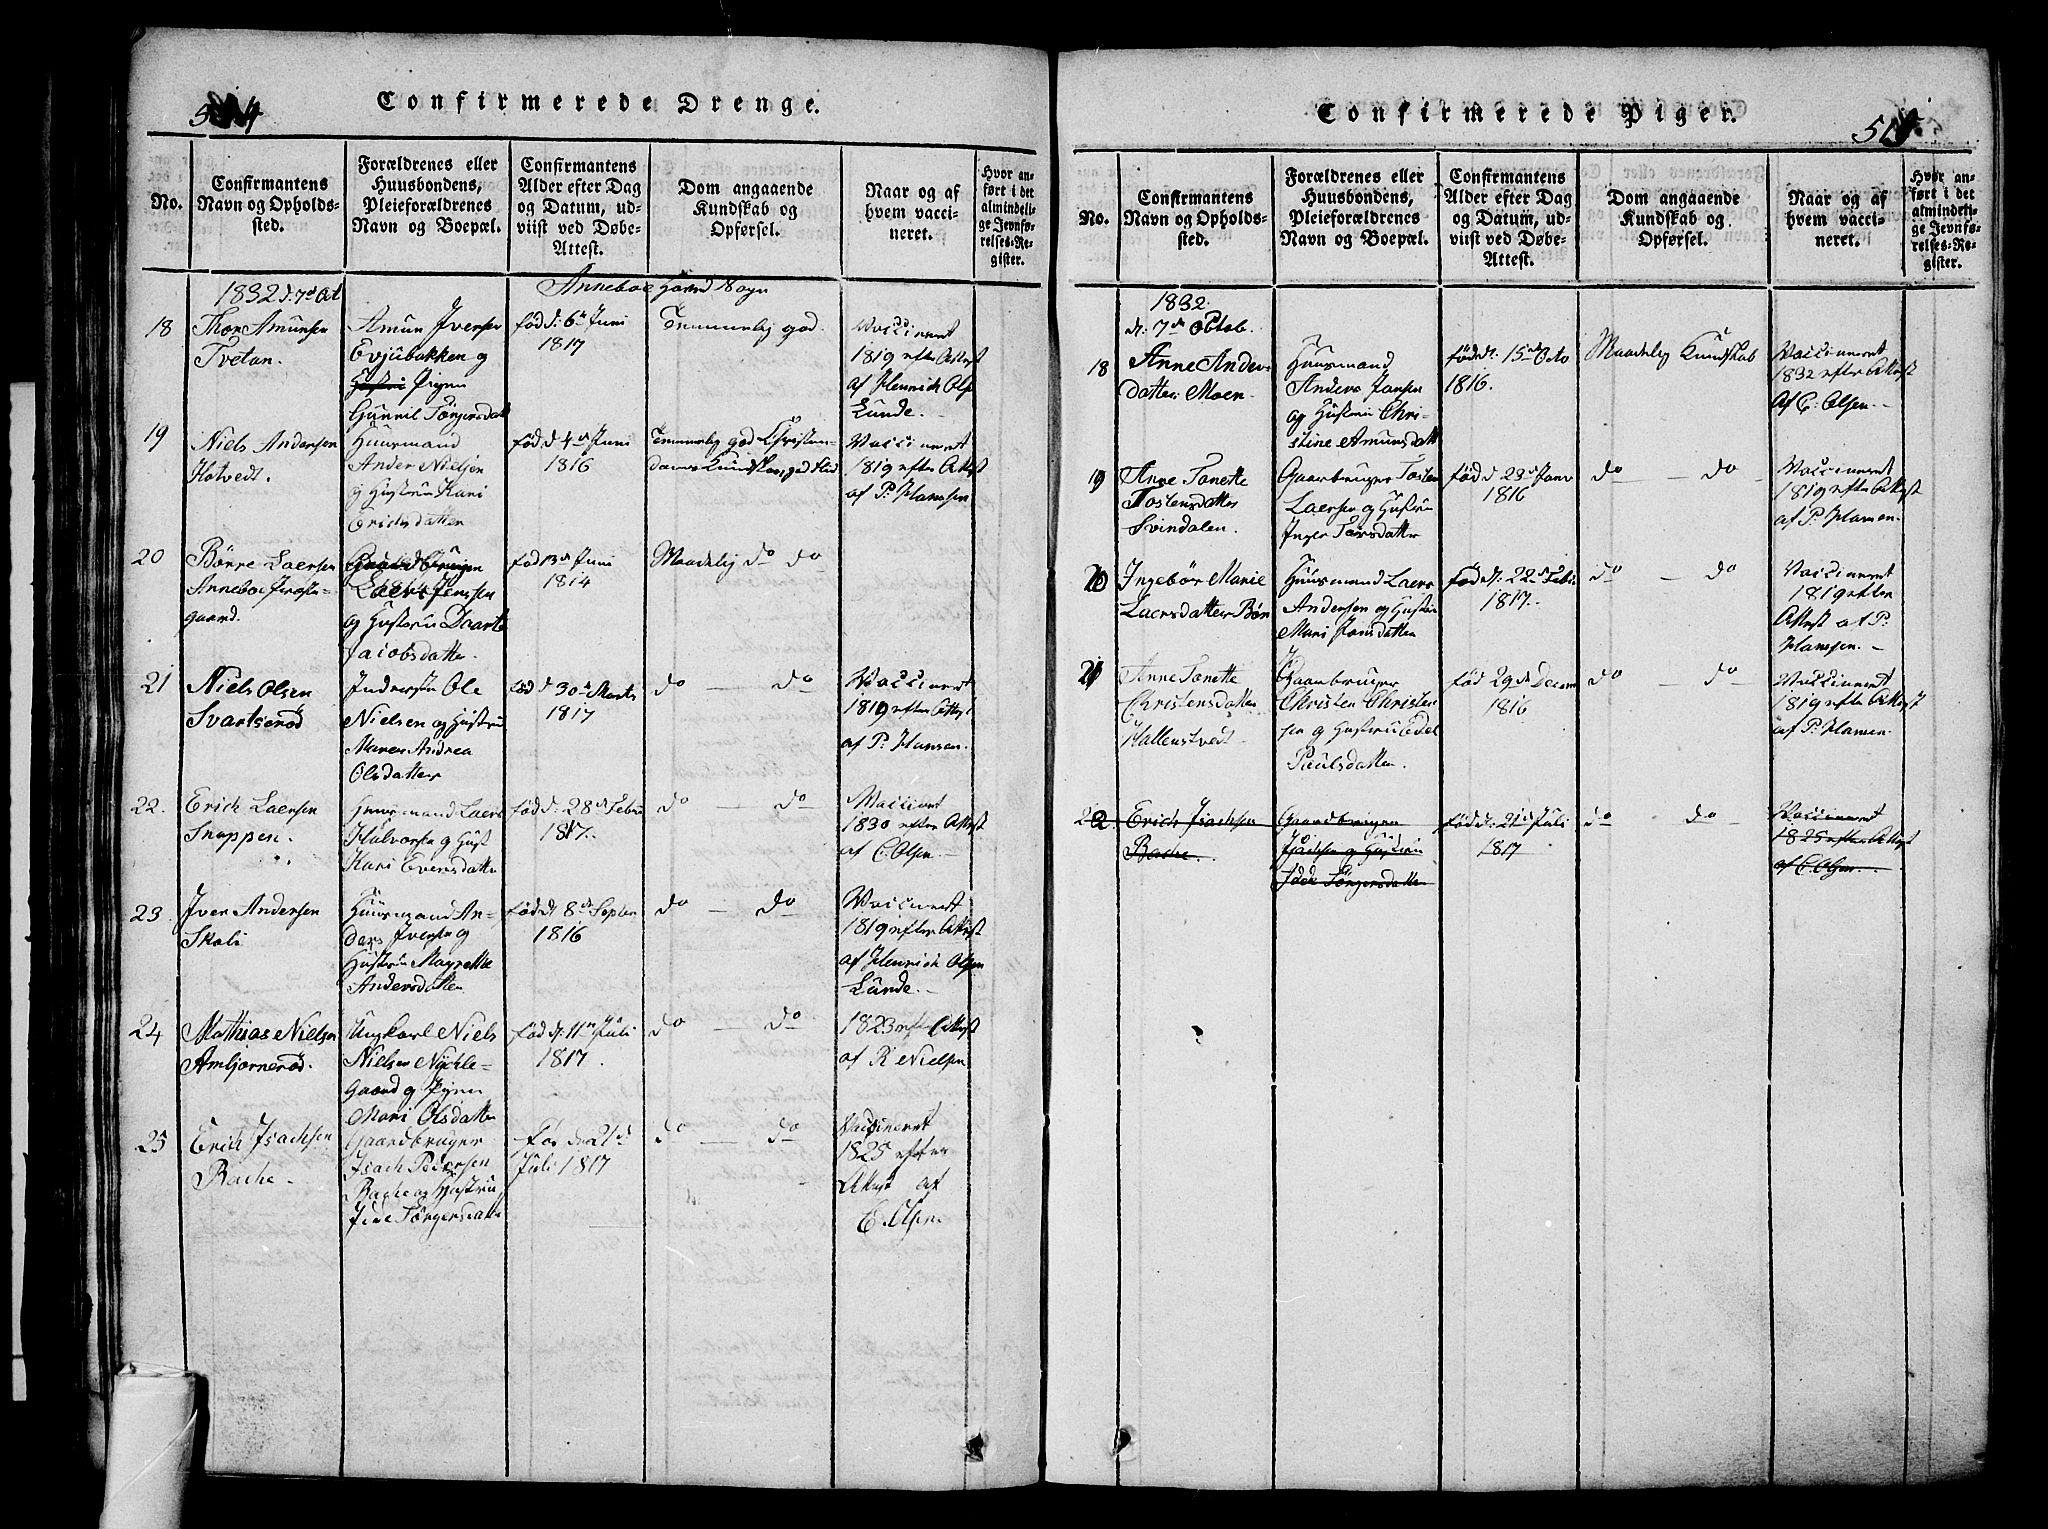 Confirmerede Drenge.
No.
Confirmantens
Navn og Opholds-
sted.
Forældrenes eller
Huusbondens,
Pleieforældrenes
Navn og Boepæl.
Confirmantens
Alder efter Dag
og Datum, ud-
viist ved Døbe-
Attest.
Dom angaaende
Kundskab og
Opførsel.
Naar og af
hvem vacci-
neret.
Hvor an-
ført i det
almindeli-
ge Jevnfø-
relses-Re-
gister.
1832 d. 7d Oct
Anneboe Hoved Sogn
18
Thor Amunsen
Tvetan.
Amun Iversen
Evjubakken og
Pigen
Gunnil Törgersdatt
fød d: 6te Juni
1817
Temmelig god.
Vaccineret
1819 efter Attest
af Henrich Olsen
Lunde.
19
Niels Andersen
Hotvedt.
Huusmand
Ander Nielsen
og Hustrü Kari
Erichsdatter
fød d 4de Juni
1816
Temmelig god Christen-
doms Kundskab, god Flid
Vaccineret
1819 efter Attest
af P: Hansen
20
Börre Laersen
Anneboe Præste-
gaard.
Gaardbruger
Laers Jensen
og Hustrü Daarte
Jacobsdatter
fød 13de Juni
1814
Maadelig do do
21
Niels Olsen
Svartsrød
Inderstü Ole
Nielsen og Hustrü
Maren Andrea
Olsdatter
fød d 30te Marts
1817
do — do
Vaccineret
1819 efter Attest
af P: Hansen.
22.
Erich Laersen
Snappen.
Huusmand Laers
Halvorsen og Hust
Kari Evensdatter
fød d: 28de Febru
1817.
do — do
Vaccineret
1830 efter Attest
af C. Olsen
23.
Iver Andersen
Skoli
Huusmand An-
ders Iversen og
Hustrü Magrethe
Andersdatter
fød d 8de Septbr
1816
do — do
Vaccineret
1819 efter Attest
af Henrich Olsen
Lunde.
24
Mathias Nielsen
Ambjørnerød.
Ungkarl Niels
Nielsen Nøchle-
gaard og Pigen
Mari Olsdatter
fød d: 11te Juli
1817.
do — do
1823 efter Attest
af R Nielsen
25
Erich Isachsen
Bache
Gaardbruger
Isach Pedersen
Bache og Hustrü
Jide Törgersdatte
fød d 21de
Juli 1817
do — do
Vaccineret
1825 efter
Attest af
C. Olsen
Confirmerede Piger.
505
No.
Confirmantens
Navn og Opholds-
sted.
Forældrenes eller
Huusbondens,
Pleieforældrenes
Navn og Boepæl.
Confirmantens
Alder efter Dag
og Datum, ud-
viist ved Døbe-
Attest.
Dom angaaende
Kundskab og
Opførsel.
Naar og af
hvem vacci-
neret.
Hvor an-
ført i det
almindeli-
ge Jevnfø-
relses-Re-
gister.
1832
d. 7de Octob.
18
Anne Anders
datter Moen.
Huusmand
Anders Jansen
og Hustrü Chri-
stine Amunsdatt
fød d: 15de Octo
1816.
Maadelig Kundskab
Vaccineret
1832 efter Attest
af C. Olsen.
19
Anne Tonette
Tostensdatter
Svindalen.
Gaardbruger Tosten
Laersen og Hustrü
Inger Torsdatter
fød d 23de Janv
1816
do — do
Vaccineret
1819 efter Attest
af P: Hansen.
20
Ingebör Marie
Laersdatter Bön
Huusmand Laers
Andersen og Hustrü
Mari Jansdatter
fød d: 22de Febru
1817.
do — do
Vaccineret
1819 efter
Attest af P:
Hanssen.
21
Anne Tonette
Christensdatter
Hallenstvedt
Gaardbruger
Christen Christen
sen og Hustrü Edel
Paulsdatter.
fød 29de Decem
1816
do — do
Vaccineret
1819 efter Attest
af P: Hansen
22.
Erich Isachsen
Bache
Gaardbruger
Isachsen og Hustrü
Jide Törgersdatter
fød d: 21de Juli
1817
do do
Vaccineret
1825 efter Attest
af C. Olsen.